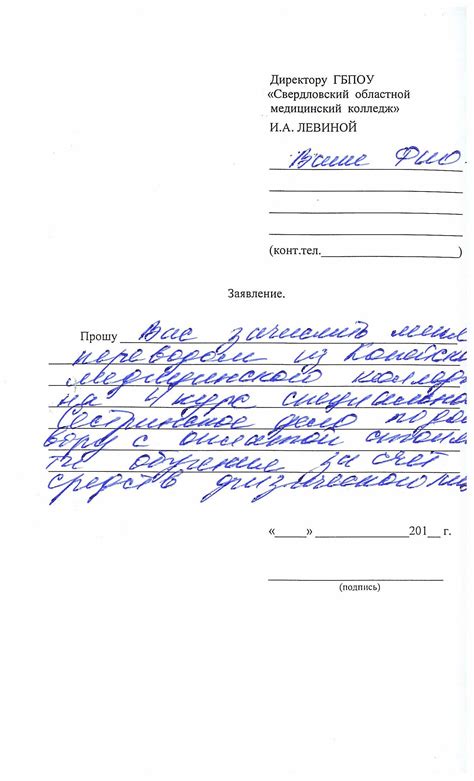 Директору ГБПОУ
«Свердловский областной
медицинский колледж»
И.А. ЛЕВИНОЙ
Ваше ФИО.
(конт.тел.____________________)
Заявление.
Прошу Вас зачислить меня
переводом из Копейск
медицинского коллед
на курс специально
Сестринское дело по до
вору с оплатой стоим
ти обучение за счёт
средств физического ли
«_____» _______________201__ г.
(подпись)